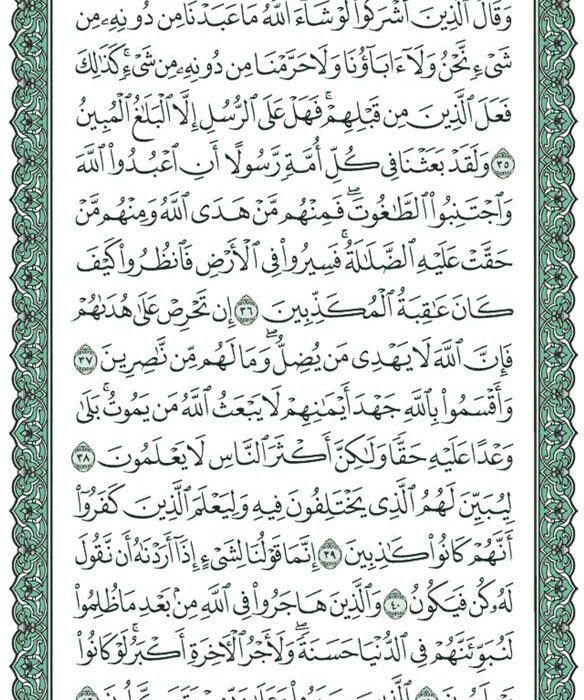 وَقَالَ ٱلَّذِينَ أَشْرَكُوا۟ لَوْ شَآءَ ٱللَّهُ مَا عَبَدْنَا مِن دُونِهِۦ مِن
شَىْءٍ نَّحْنُ وَلَآ ءَابَآؤُنَا وَلَا حَرَّمْنَا مِن دُونِهِۦ مِن شَىْءٍ ۚ كَذَٰلِكَ
فَعَلَ ٱلَّذِينَ مِن قَبْلِهِمْ ۚ فَهَلْ عَلَى ٱلرُّسُلِ إِلَّا ٱلْبَلَٰغُ ٱلْمُبِينُ
٣٥ وَلَقَدْ بَعَثْنَا فِى كُلِّ أُمَّةٍ رَّسُولًا أَنِ ٱعْبُدُوا۟ ٱللَّهَ
وَٱجْتَنِبُوا۟ ٱلطَّٰغُوتَ ۖ فَمِنْهُم مَّنْ هَدَى ٱللَّهُ وَمِنْهُم مَّنْ
حَقَّتْ عَلَيْهِ ٱلضَّلَٰلَةُ ۚ فَسِيرُوا۟ فِى ٱلْأَرْضِ فَٱنظُرُوا۟ كَيْفَ
كَانَ عَٰقِبَةُ ٱلْمُكَذِّبِينَ ٣٦ إِن تَحْرِصْ عَلَىٰ هُدَىٰهُمْ
فَإِنَّ ٱللَّهَ لَا يَهْدِى مَن يُضِلُّ ۖ وَمَا لَهُم مِّن نَّٰصِرِينَ ٣٧
وَأَقْسَمُوا۟ بِٱللَّهِ جَهْدَ أَيْمَٰنِهِمْ ۙ لَا يَبْعَثُ ٱللَّهُ مَن يَمُوتُ ۚ بَلَىٰ
وَعْدًا عَلَيْهِ حَقًّا وَلَٰكِنَّ أَكْثَرَ ٱلنَّاسِ لَا يَعْلَمُونَ ٣٨
لِيُبَيِّنَ لَهُمُ ٱلَّذِى يَخْتَلِفُونَ فِيهِ وَلِيَعْلَمَ ٱلَّذِينَ كَفَرُوٓا۟
أَنَّهُمْ كَانُوا۟ كَٰذِبِينَ ٣٩ إِنَّمَا قَوْلُنَا لِشَىْءٍ إِذَآ أَرَدْنَٰهُ أَن نَّقُولَ
لَهُۥ كُن فَيَكُونُ ٤٠ وَٱلَّذِينَ هَاجَرُوا۟ فِى ٱللَّهِ مِنۢ بَعْدِ مَا ظُلِمُوا۟
لَنُبَوِّئَنَّهُمْ فِى ٱلدُّنْيَا حَسَنَةً ۖ وَلَأَجْرُ ٱلْءَاخِرَةِ أَكْبَرُ ۚ لَوْ كَانُوا۟